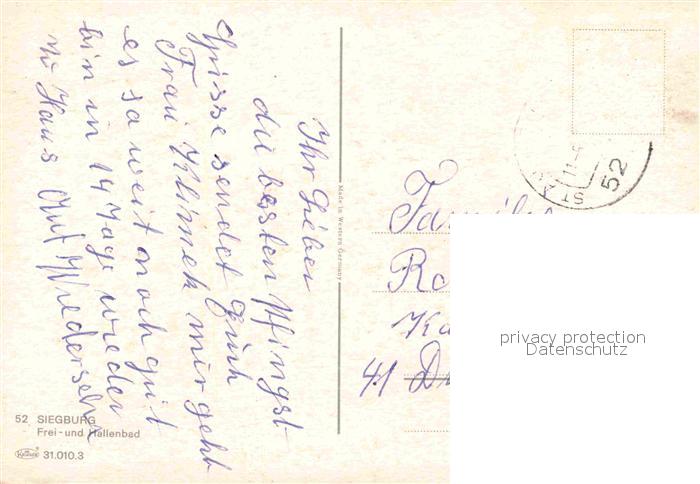 Ihr Lieber
die besten Pfingst
Grüsse sendet Euch
Frau Klimek mir geht
es so weit noch gut
bin in 14 Tage wieder
zu Haus Auf Wiedersehn
52 SIEGBURG
Frei- und Hallenbad
31.010.3
Made in Western Germany
52
Familie
41
privacy protection
Datenschutz